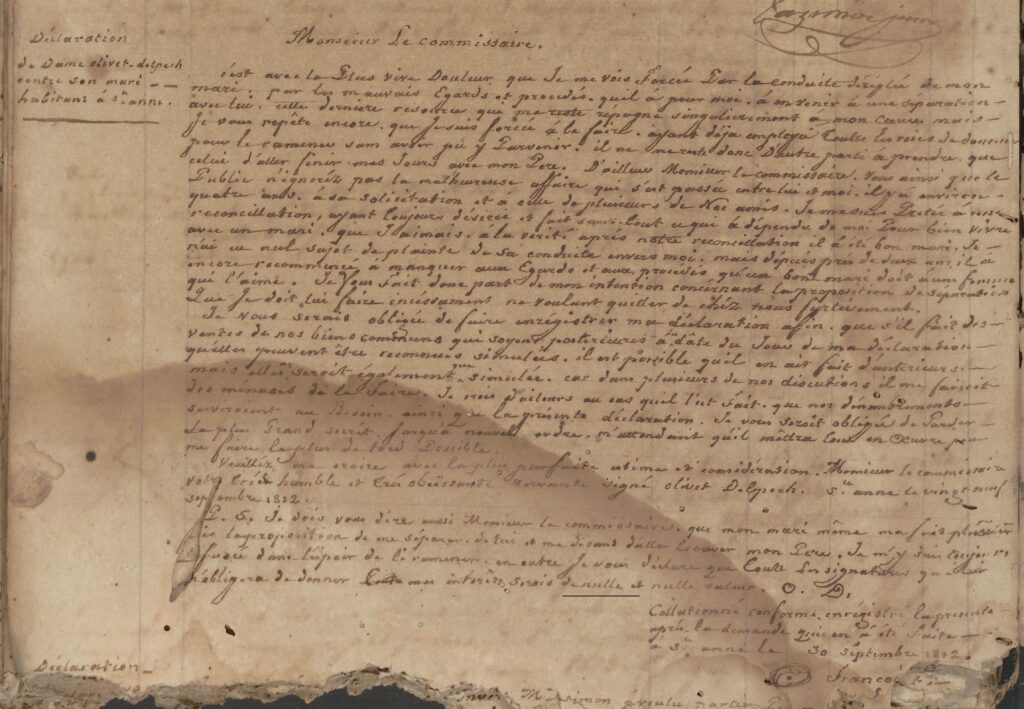 Cazimir jeune
Déclaration
de Dame olivet-delpech
contre son mari
habitant à Ste anne.
Monsieur Le commissaire.
c'est avec la Plus vive Douleur que Je me vois Forcée Par la conduite déréglée de mon
mari, par les mauvais Egards et procedés, qu'il à pour moi, à en venir à une séparation
avec lui. cette derniere resource qui me reste répugne singulierement à mon Cœur, mais
Je vous repête encore, que Je suis forcée à le faire, ayant déja employé Toutes les voies de douceur
pour le ramener sans avoir pû y Parvenir. il ne me reste donc D'autre parti à prendre, que
celui d'aller finir mes Jours avec mon Pere. D'ailleurs Monsieur le commissaire, Vous ainsi que le
Public n'ignoréz pas la malhureuse affaire qui s'est passée entre lui et moi, il y à environ
quatre ans. à sa solicitation et à celle de plusieurs de Nos amis. Je me suis Pretée à une
reconcillation, ayant toujours désirée et fait tout ce qui à dépendu de moi Pour bien vivre
avec un mari, que J'aimais. à la verité après notre reconcillation il à été bon mari. Je
n'ai eu nul sujet de plainte de sa conduite envers moi, mais dépuis près de deux ans, il à
encore recommencé à manquer aux Egards et aux procédés qu'un bon mari doit à une femme
qui l'aime. Je Vous Fait donc part de mon intention concernant la proposition de séparation
Que Je doit lui faire incessament ne voulant quitter de chéz nous furtivement.
Je vous serais obligée de faire enrégistrer ma déclaration afin, que s'il fait des
ventes de nos biens communs que soyent postérieures à dâte du Jour de ma déclaration
qu'elles peuvent être reconnues simulées. il est possible qu'il en ait fait d'antérieurs.
mais elles seroit également simulée. car dans plusieurs de nos discutions il me faisoit
des ménasés de la Faire. Je crois d'ailleurs au cas quel l'ut Fait. que nos dénombrements
serviroient au Besoin. ainsi que la présente déclaration. Je vous seroit obligée de Garder
Le plus Grand secrét jusqu'à nouvel ordre, m'attendant qu'il mêttra tout en Œuvre pour
me faire le plus de tord Possible.
Veuilléz me croire avec la plus parfaite estime et considération. Monsieur le commissaire
votre très humble et très obéïssante servante signé olivet Delpech. Ste anne le vingt neuf
septembre 1812.
P. S. Je dois vous dire aussi Monsieur le commissaire, que mon mari même ma fais plusieurs
fois la proposition de me séparer de lui et me disant d'aller trouver mon Pere. Je m'y suis toujours
refusée dans l'éspoir de le ramener. en outre Je vous déclare que toute les signatures que
obligera de donner contre mes interêts serois de nulle et nulle valeur. O. D.
Collationné conforme, enrégistré la présente
après la demande qui en à été faite
à Ste anne le 30 septembre 1812.
Déclaration